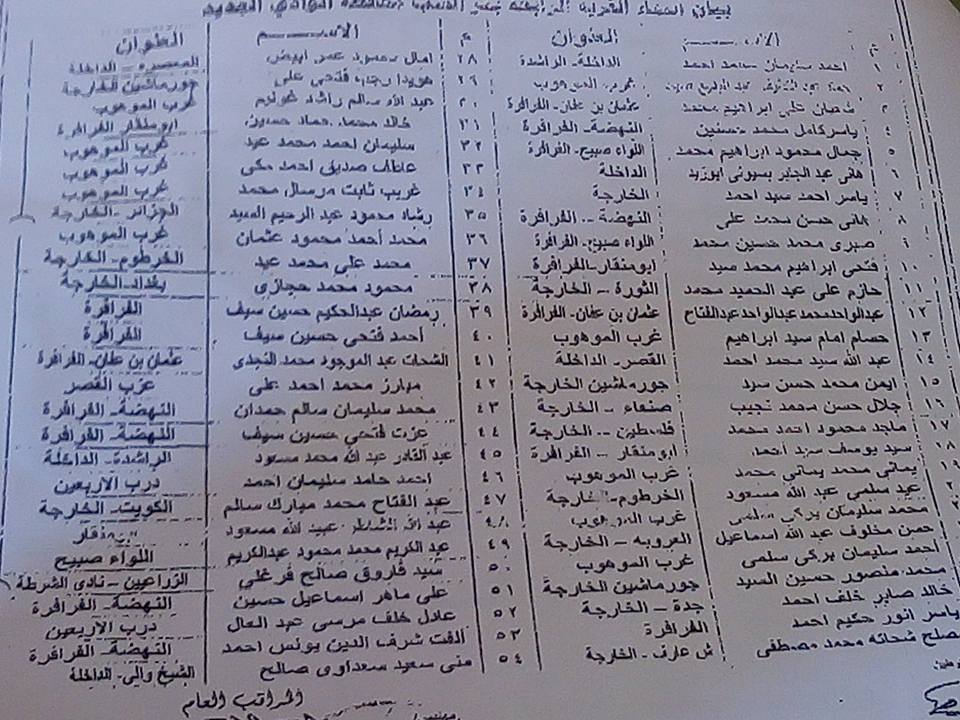 م الاسم العنوان
١ احمد سليمان محمد احمد الداخلة - الراشدة
٢ الموهوب
٣ شعبان على ابراهيم محمد عثمان بن عفان - الفرافرة
٤ ياسر كامل محمد حسنين النهضة - الفرافرة
٥ جمال محمود ابراهيم محمد اللواء صبيح - الفرافرة
٦ هانى عبد الجابر بسيونى ابوزيد الداخلة
٧ ياسر احمد سيد احمد الخارجة
٨ هانى حسن محمد على النهضة - الفرافرة
٩ صبرى محمد حسين محمد اللواء صبيح - الفرافرة
١٠ فتحى ابراهيم محمد سيد ابو منقار - الفرافرة
١١ حازم على عبد الحميد محمد الثورة - الخارجة
١٢ عبدالواحد محمد عبدالواحد عبدالفتاح عثمان بن عفان - الفرافرة
١٣ حسام امام سيد ابراهيم غرب الموهوب
١٤ عبد الله سيد محمد احمد القصر - الداخلة
١٥ ايمن محمد حسن سيد جورماشين الخارجة
١٦ جلال حسن محمد نجيب صنعاء - الخارجة
١٧ ماجد محمود احمد محمد فلسطين - الخارجة
١٨ سيد يوسف سيد احمد ابو منقار - الفرافرة
١٩ يمانى محمد يمانى محمد غرب الموهوب
عيد سلمى عبد الله مسعود الخرطوم - الخارجة
محمد سليمان بركى سلمى غرب الموهوب
حسن مخلوف عبد الله اسماعيل العروبه - الخارجة
احمد سليمان بركى سلمى غرب الموهوب
محمد منصور حسين السيد جورماشين الخارجة
خالد صابر خلف احمد جدة - الخارجة
ياسر انور حكيم احمد الفرافرة
مصلح شحاته محمد مصطفى ش عارف - الخارجة
م الاســـم العنوان
٢٨ امال محمود عمر ابيض المعصرة - الداخلة
٢٩ هويدا رجب فتحى على جورماشين الخارجة
٣٠ عبد الله سالم راشد غرب الموهوب
٣١ خالد محمد حماد حسين ابو منقار الفرافرة
٣٢ سليمان احمد محمد عيد غرب الموهوب
٣٣ عاطف صديق احمد مكى غرب الموهوب
٣٤ غريب ثابت مرسال محمد غرب الموهوب
٣٥ رشاد محمود عبد الرحيم السيد الجزائر - الخارجة
٣٦ محمد أحمد محمود عثمان غرب الموهوب
٣٧ محمد على محمد عيد الخرطوم - الخارجة
٣٨ محمود محمد حجازى بغداد - الخارجة
٣٩ رمضان عبدالحكيم حسين سيف الفرافرة
٤٠ أحمد فتحى حسين سيف الفرافرة
٤١ الشحات عبد الموجود محمد النجدى عثمان بن عفان - الفرافرة
٤٢ مبارز محمد احمد على عزب القصر
٤٣ محمد سليمان سالم حمدان النهضة - الفرافرة
٤٤ عزت فتحي حسين سيف النهضة - الفرافرة
٤٥ عبد القادر عبد الله محمد مسعود الراشدة - الداخلة
٤٦ احمد حامد سليمان احمد درب الاربعين
٤٧ عبد الفتاح محمد مبارك سالم الكويت - الخارجة
٤٨ عبد الله الشاطر عبد الله مسعود
٤٩ عبد الكريم محمد محمود عبدالكريم اللواء صبيح
سيد فاروق صالح فرغلي الزراعيين - نادى الشرطة
٥١ على ماهر اسماعيل حسين النهضة - الفرافرة
٥٢ عادل خلف مرسى عبد العال درب الاربعين
٥٣ الفت شرف الدين يونس احمد النهضة - الفرافرة
٥٤ منى سعيد سعداوى صالح الشيخ والى - الداخلة
المراقب العام